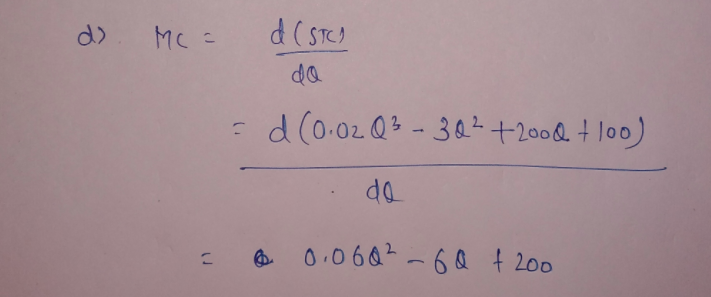 d) MC = d(STC)
dQ
= d(0.02Q³ - 3Q² + 200Q + 100)
dQ
= 0.06Q² - 6Q + 200